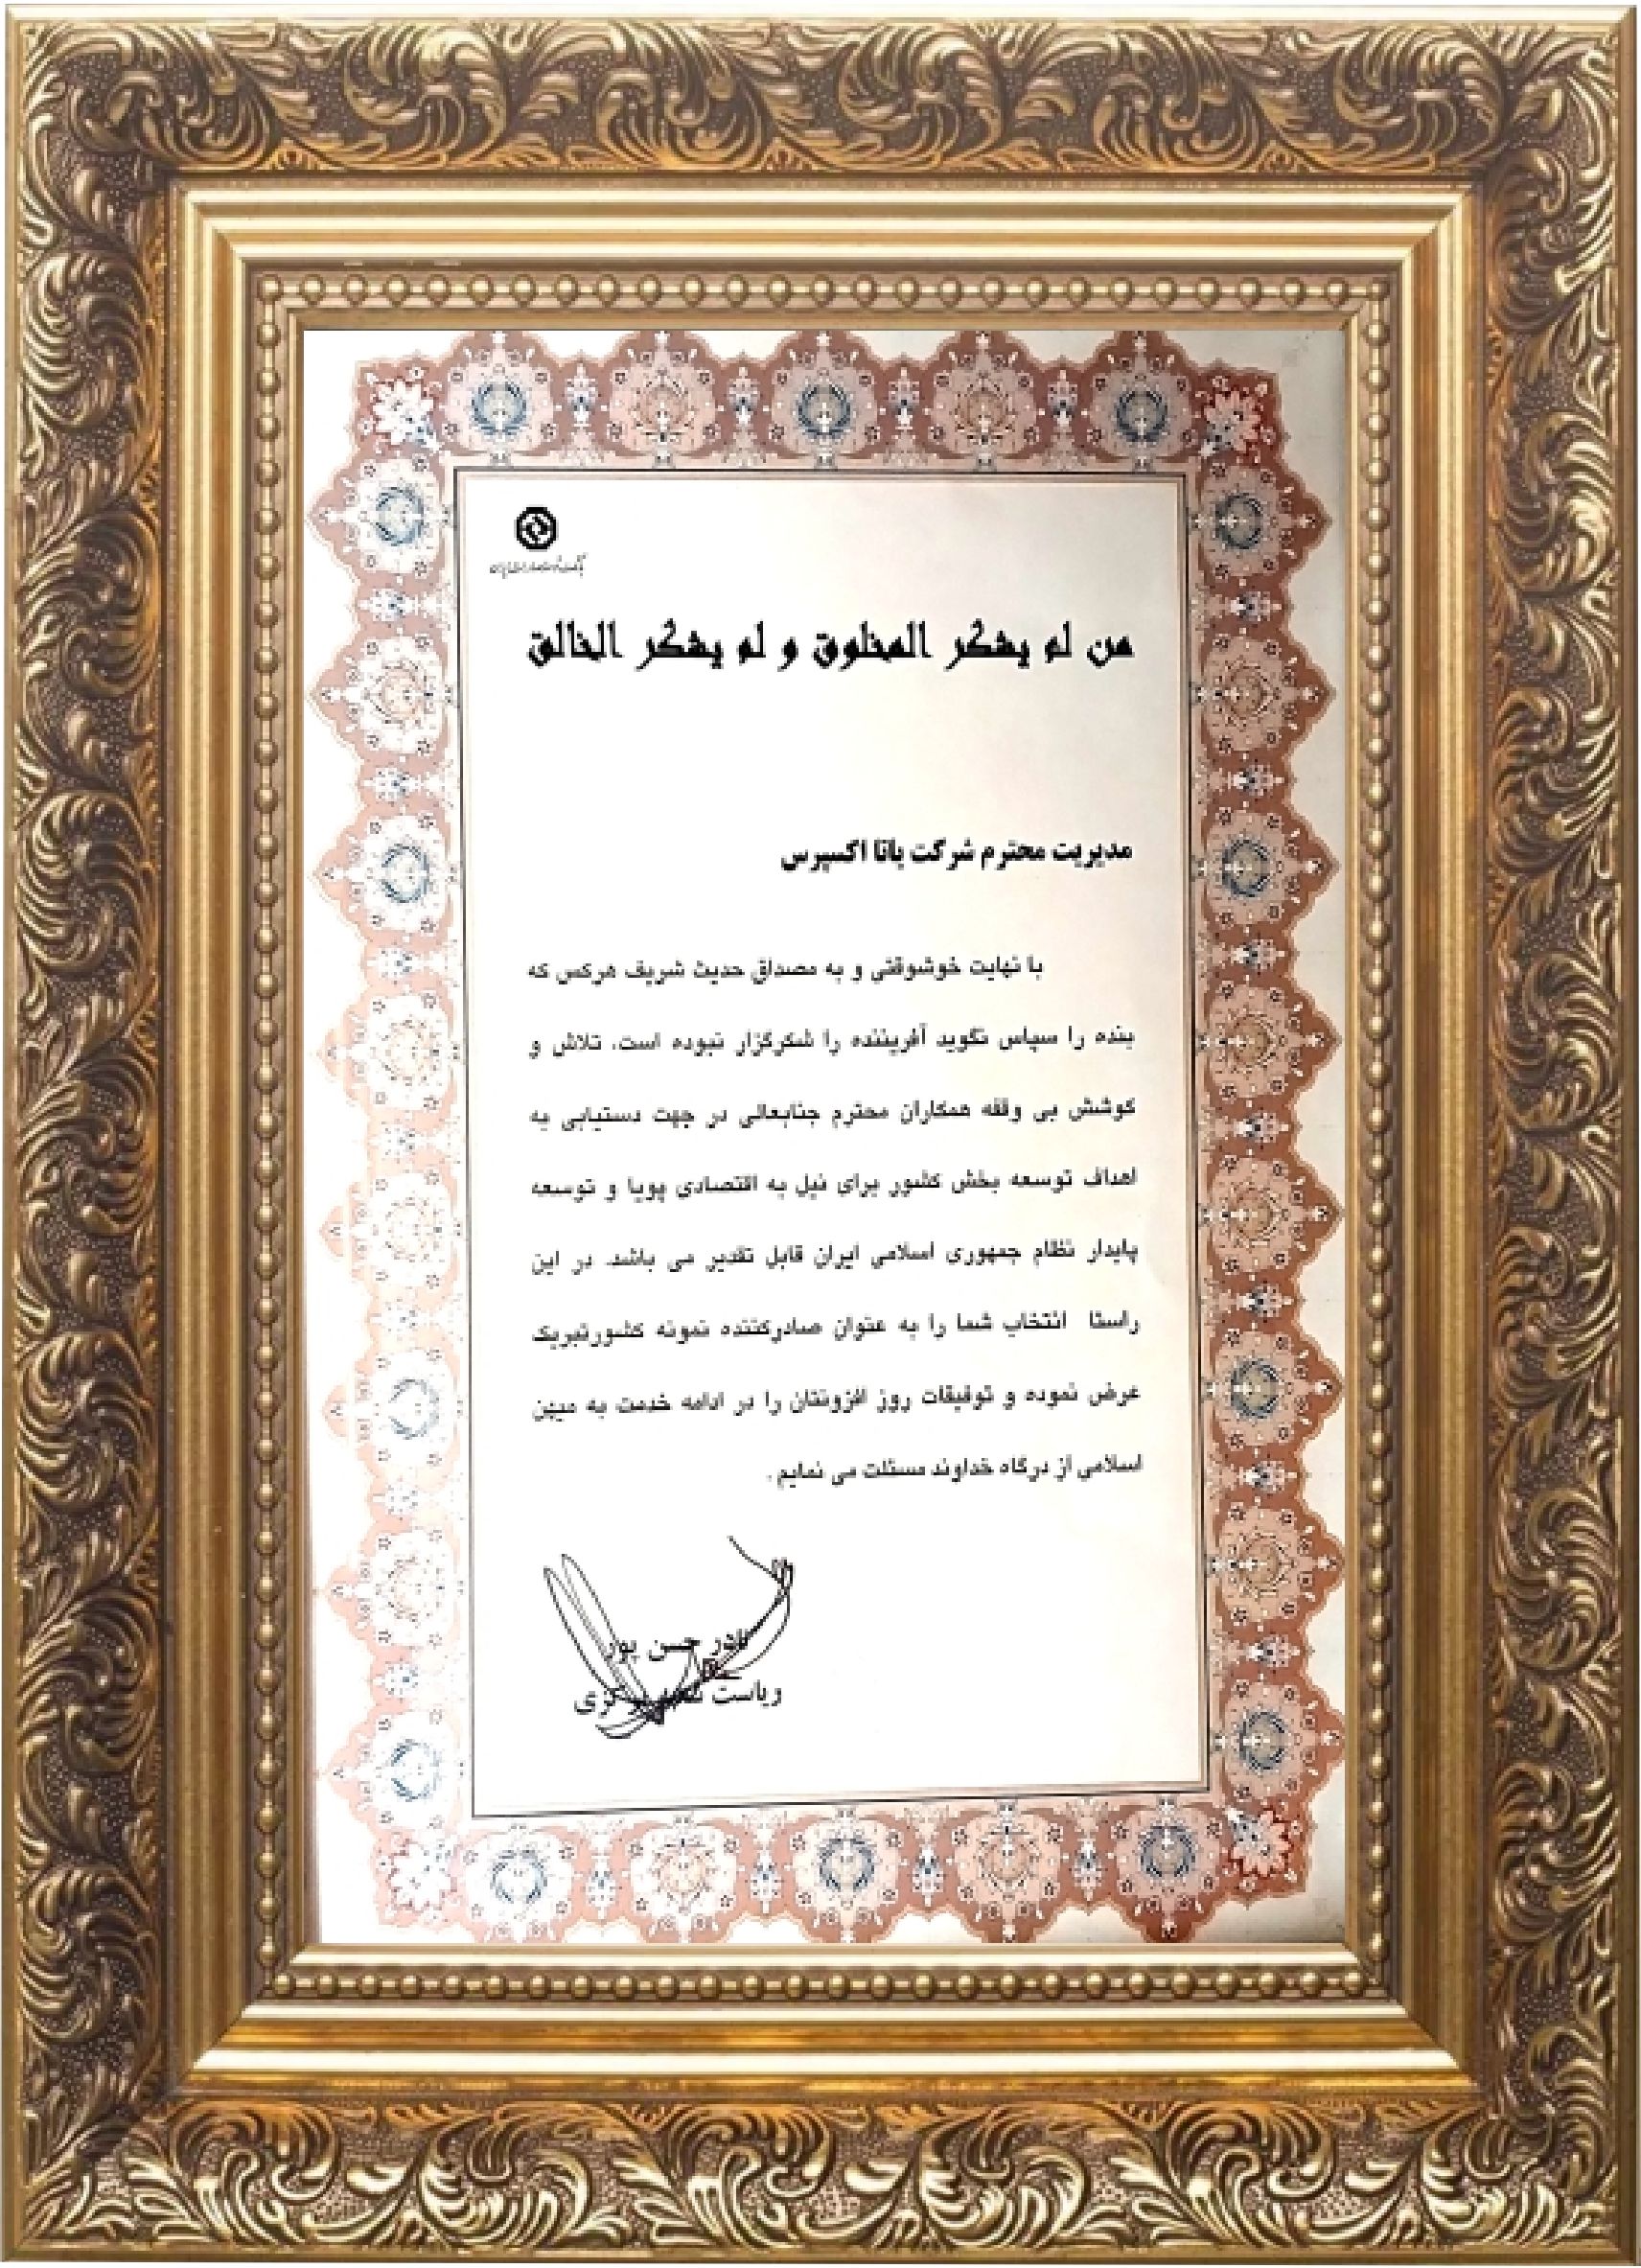 بانک توسعه صادرات ایران
من لم یشکر المخلوق و لم یشکر الخالق
مدیریت محترم شرکت یانا اکسپرس
با نهایت خوشوقتی و به مصداق حدیث شریف هرکس که
بنده را سپاس نگوید آفریننده را شکرگزار نبوده است، تلاش و
کوشش بی وقفه همکاران محترم جنابعالی در جهت دستیابی به
اهداف توسعه بخش کشور برای نیل به اقتصادی پویا و توسعه
پایدار نظام جمهوری اسلامی ایران قابل تقدیر می باشد. در این
راستا انتخاب شما را به عنوان صادرکننده نمونه کشورتبریک
عرض نموده و توفیقات روز افزونتان را در ادامه خدمت به میهن
اسلامی از درگاه خداوند مسئلت می نمایم.
نادر حسن پور
ریاست شعبه مرکزی